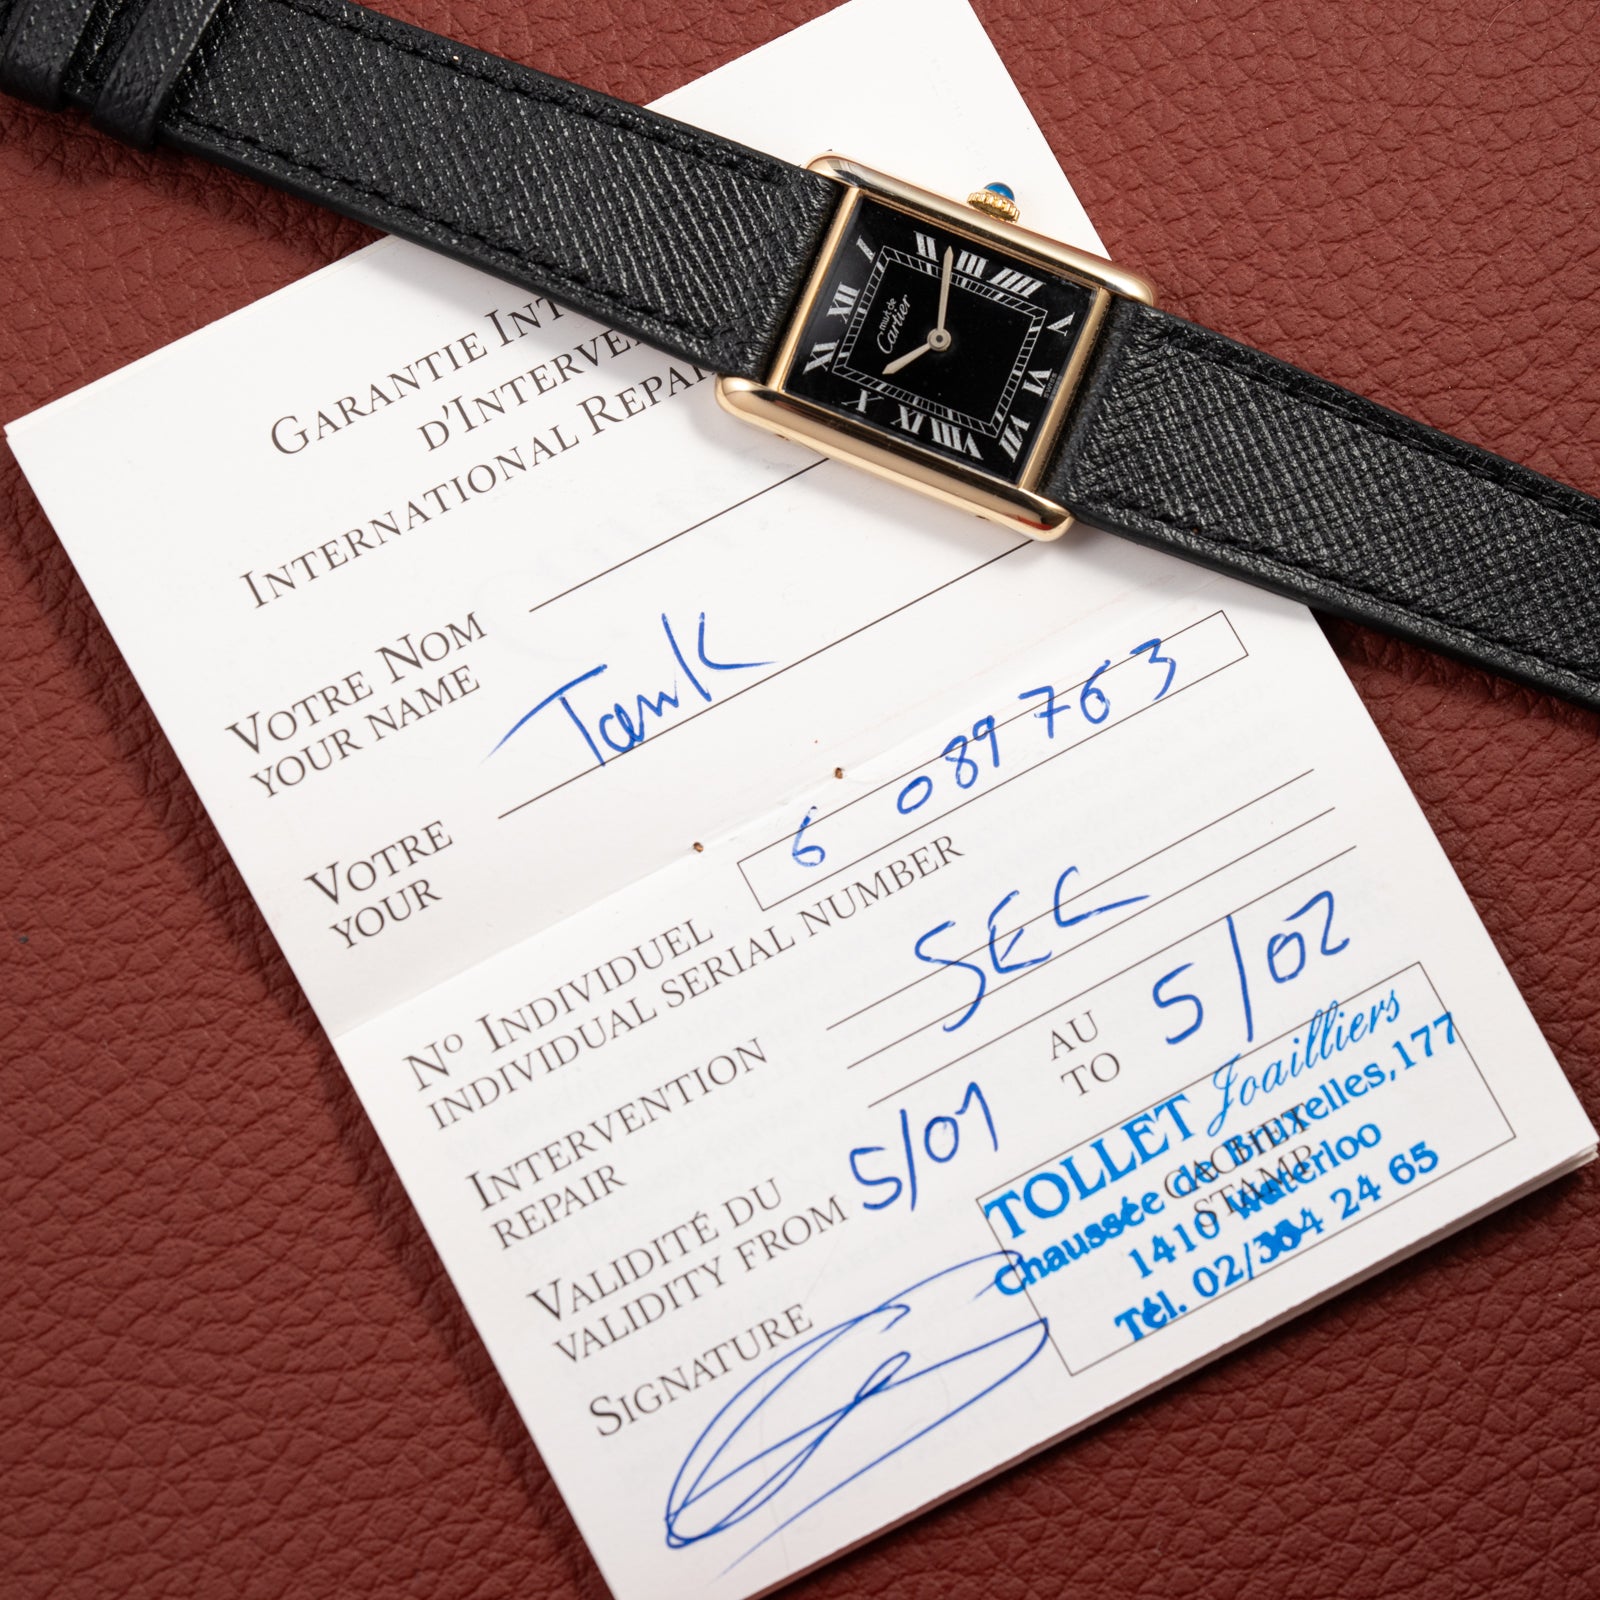 GARANTIE INT
D'INTERVE
INTERNATIONAL REPAI
VOTRE NOM
YOUR NAME
VOTRE Tank
YOUR
Nº INDIVIDUEL 6 089763
INDIVIDUAL SERIAL NUMBER
INTERVENTION SEC
REPAIR
VALIDITÉ DU 5/01 AU 5/02
VALIDITY FROM TO
SIGNATURE
CACHET
STAMP
TOLLET Joailliers
Chaussée de Bruxelles, 177
1410 Waterloo
Tél. 02/354 24 65
I II III IIII V VI VII VIII IX X XI XII
must de
Cartier